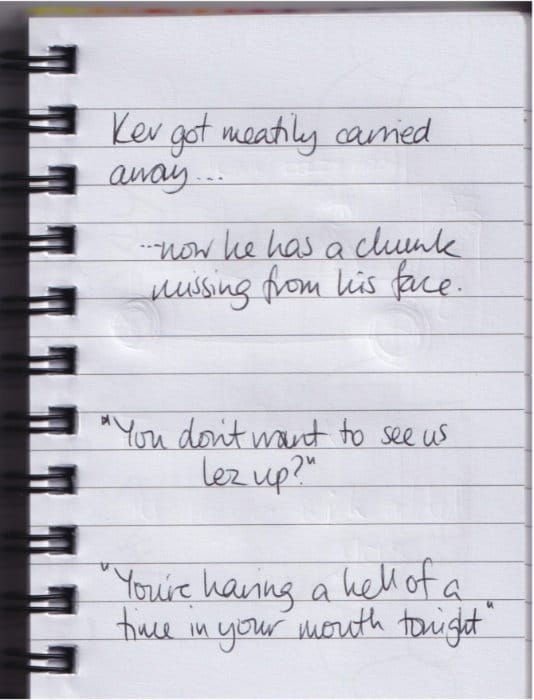 Kev got meatily carried
away...
...now he has a chunk
missing from his face.
"You don't want to see us
lez up?"
"You're having a hell of a
time in your mouth tonight"